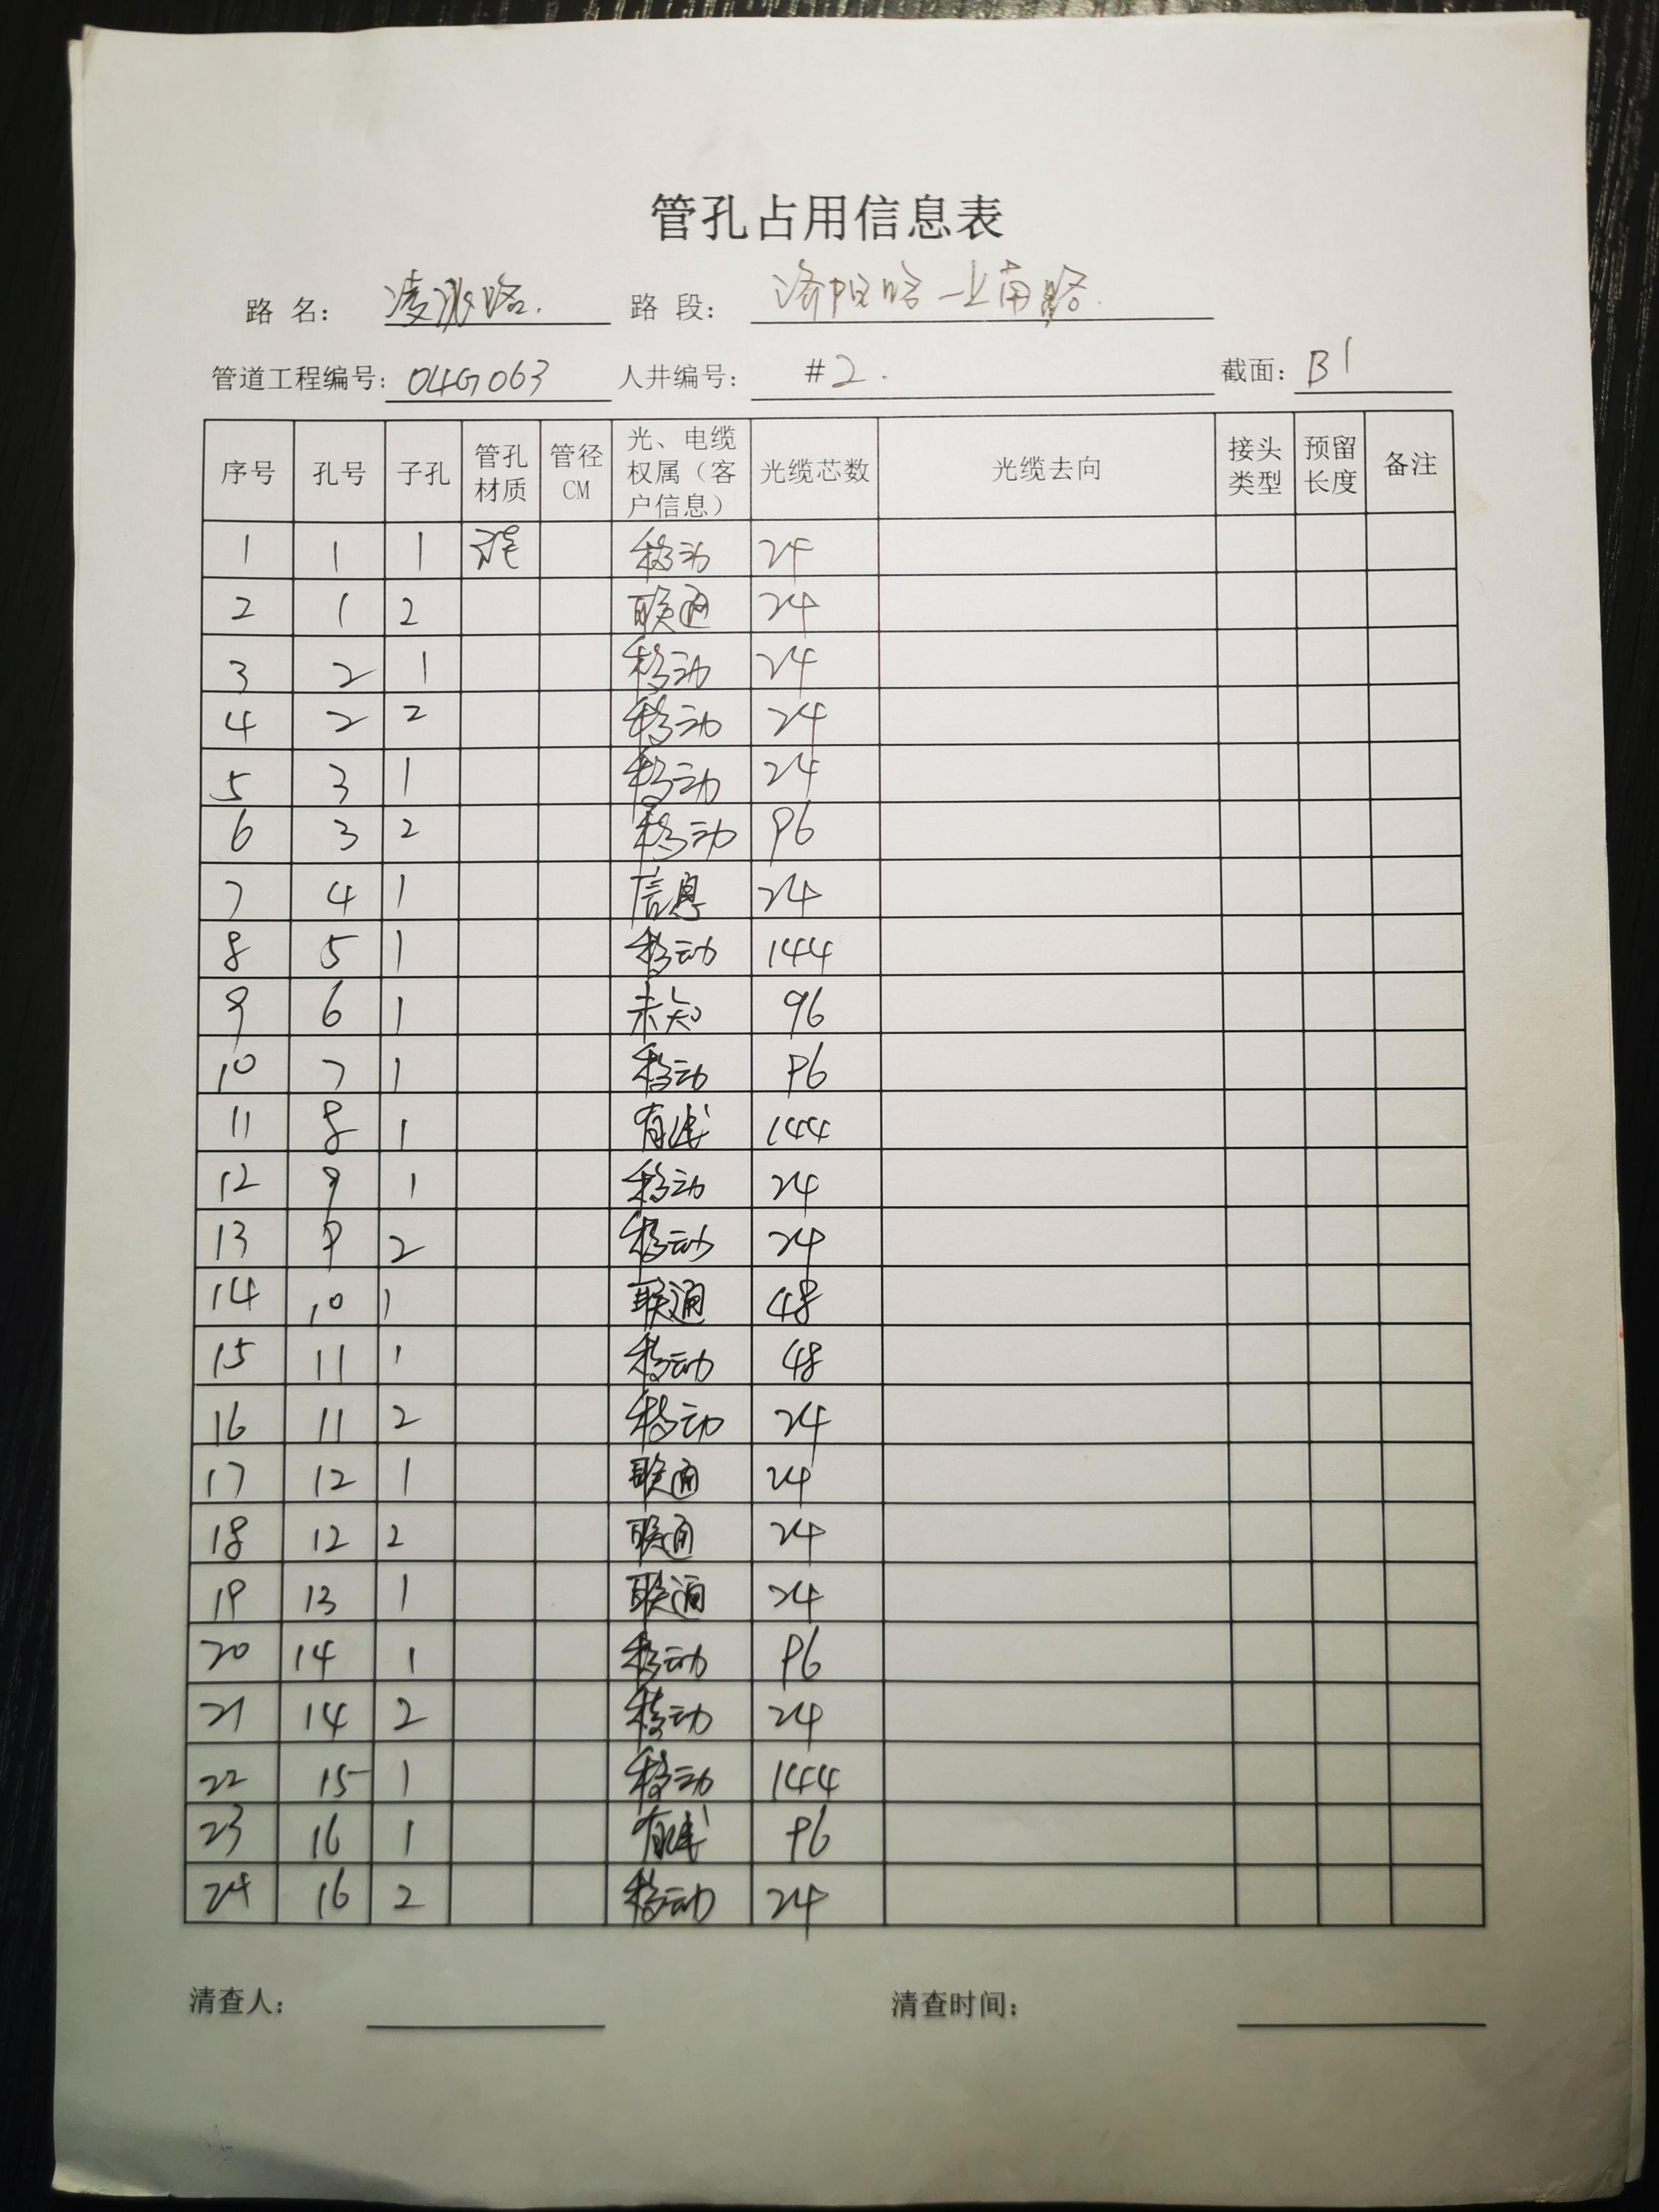 管孔占用信息表
路 名: 凌兆路. 路 段: 洛阳路—上南路.
管道工程编号: 04G063 人井编号: #2. 截面: B1
序号 孔号 子孔 管孔材质 管径CM 光、电缆权属（客户信息） 光缆芯数 光缆去向 接头类型 预留长度 备注
1 1 1 混 移动 24
2 1 2 联通 24
3 2 1 移动 24
4 2 2 移动 24
5 3 1 移动 24
6 3 2 移动 96
7 4 1 信息 24
8 5 1 移动 144
9 6 1 未知 96
10 7 1 移动 96
11 8 1 有线 144
12 9 1 移动 24
13 9 2 移动 24
14 10 1 联通 48
15 11 1 移动 48
16 11 2 移动 24
17 12 1 联通 24
18 12 2 联通 24
19 13 1 联通 24
20 14 1 移动 96
21 14 2 移动 24
22 15 1 移动 144
23 16 1 有线 96
24 16 2 移动 24
清查人: 清查时间: